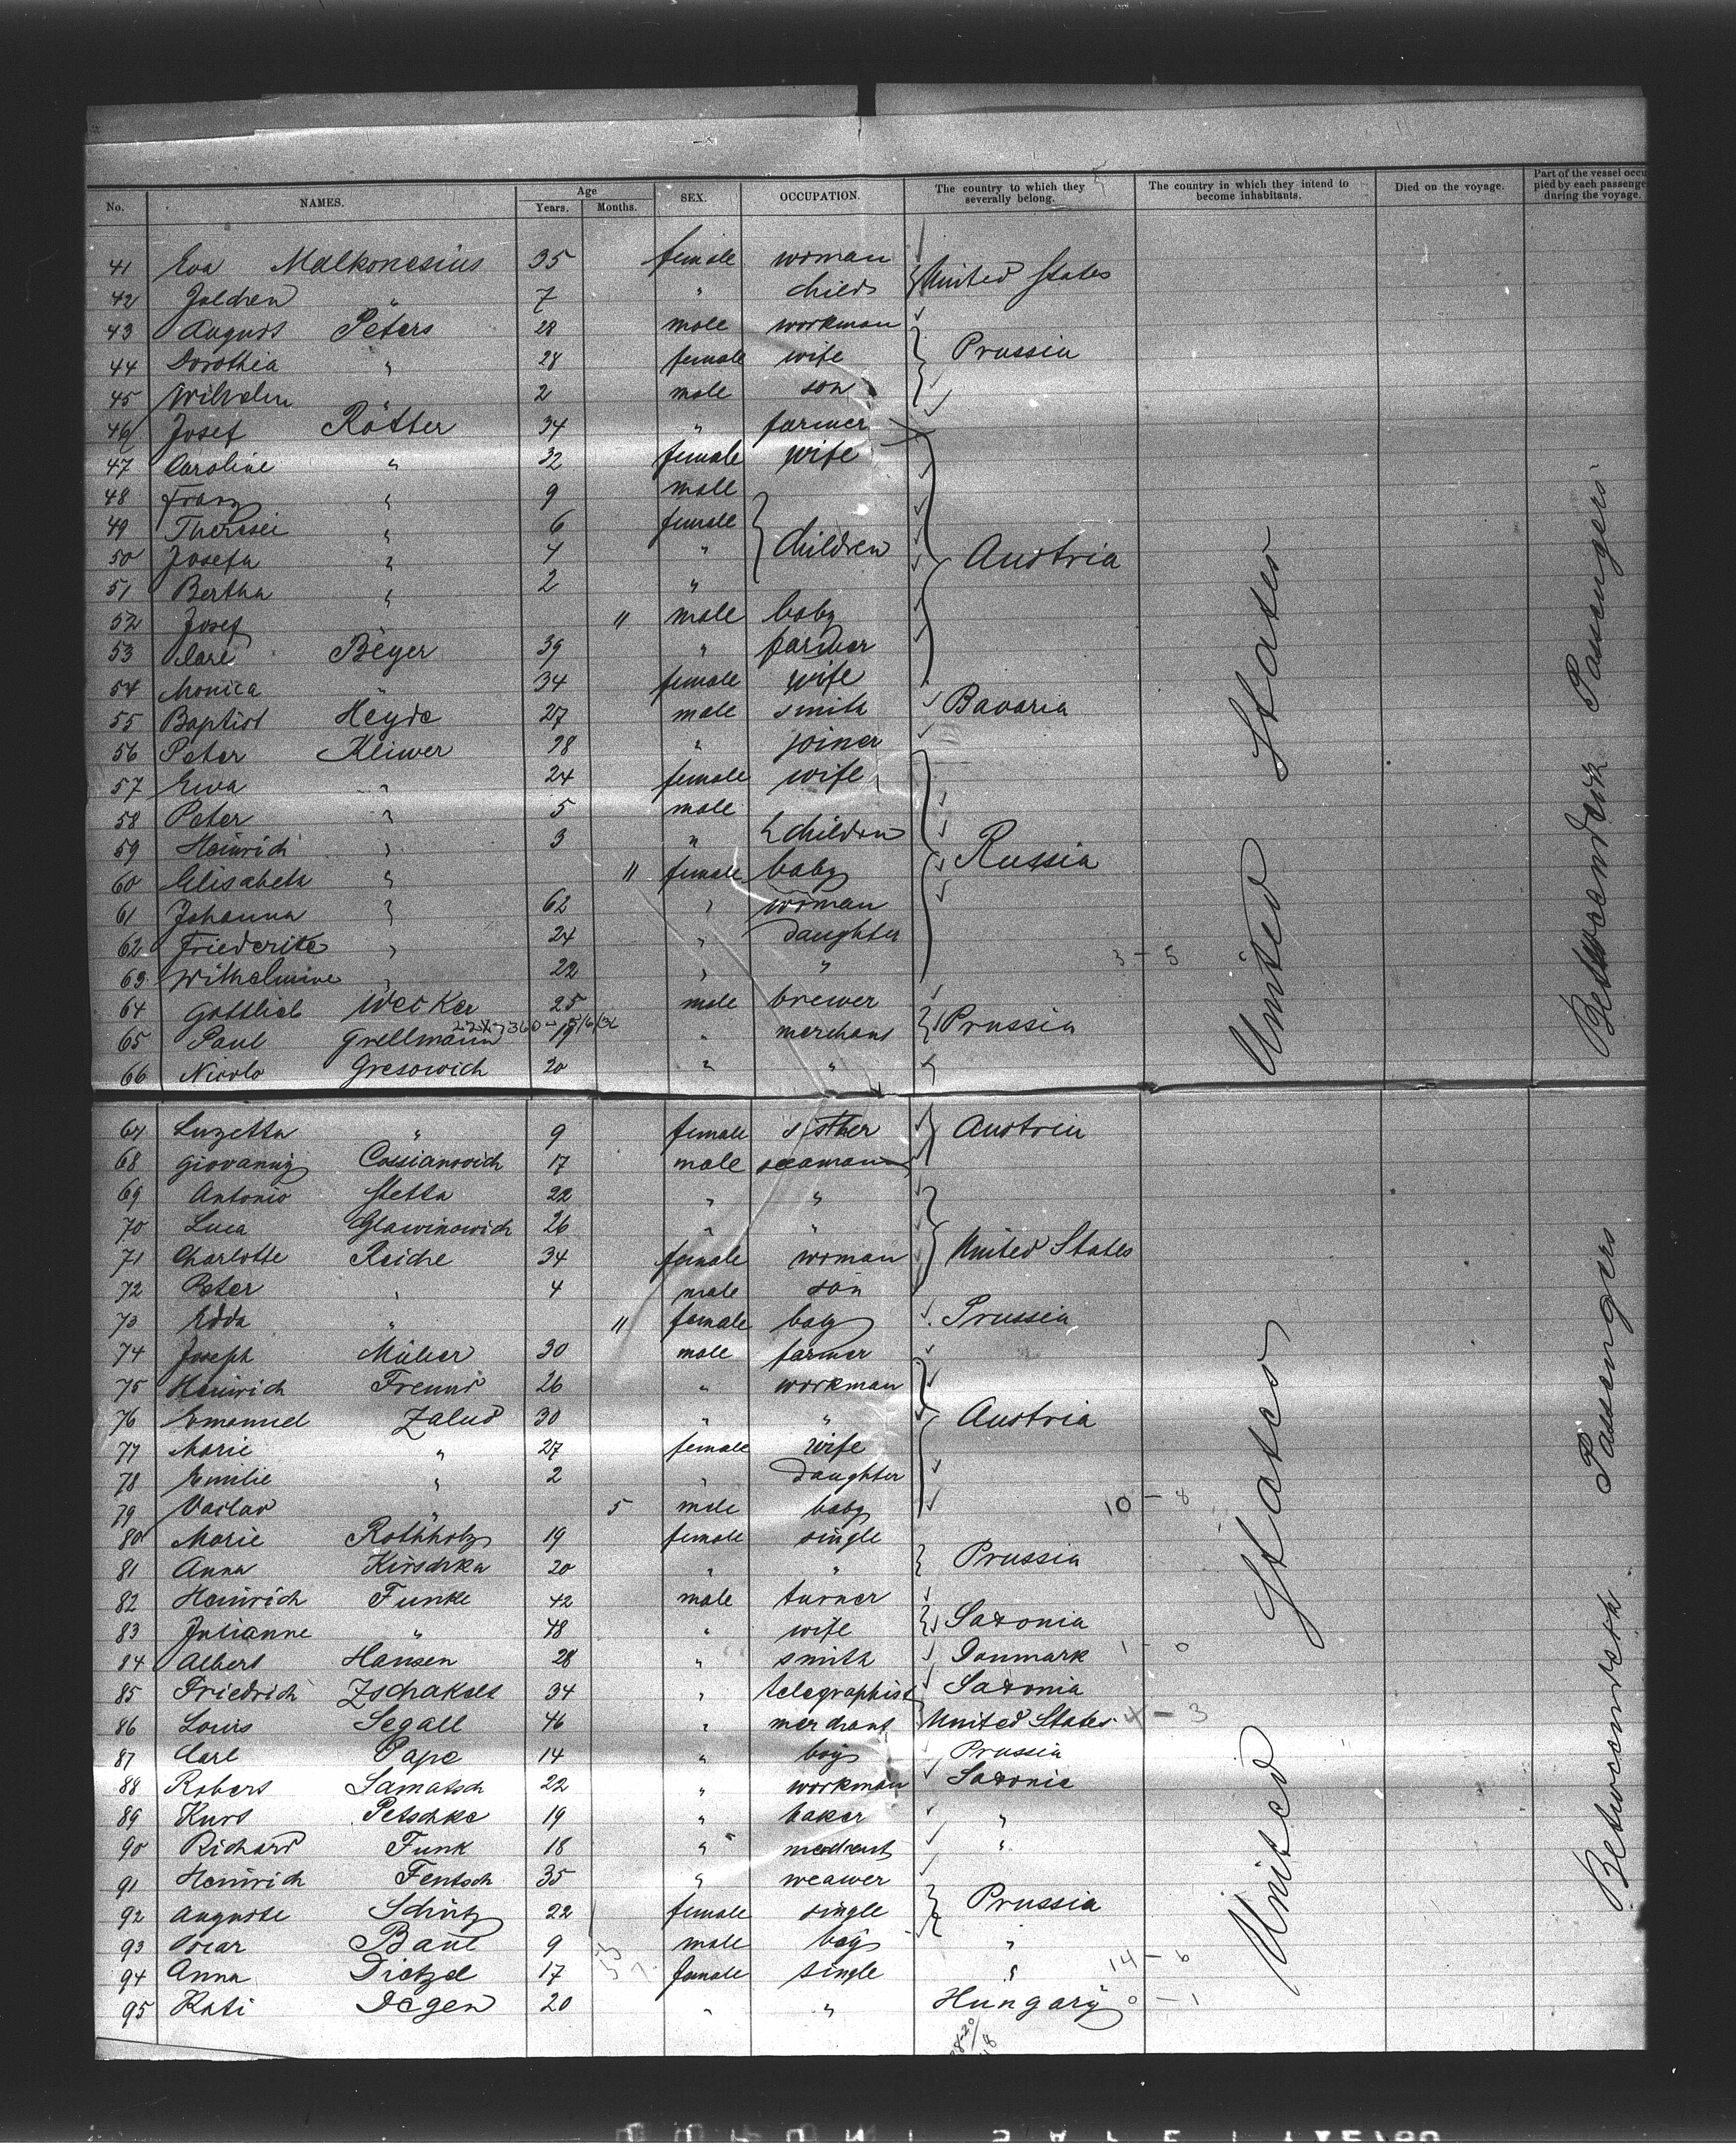 No. NAMES. Age Years. Months. SEX. OCCUPATION. The country to which they severally belong. The country in which they intend to become inhabitants. Died on the voyage. Part of the vessel occu pied by each passenge during the voyage.
41 Eva Malkonesius 35 female woman United States
42 " 7 " child
43 August Peters 28 male workman
44 Dorothea " 28 female wife Prussia
45 Wilhelm " 2 male son
46 Josef Rötter 34 " farmer
47 Caroline " 32 female wife
48 Franz " 9 male
49 Theresei " 6 female
50 Josefa " 4 " children Austria
51 Bertha " 2 "
52 Josef 11 male baby
53 Carl Beyer 39 " farmer
54 Monica " 34 female wife
55 Baptist Heyde 27 male smith Bavaria
56 Peter Kliwer 28 " joiner
57 Ewa " 24 female wife
58 Peter " 5 male
59 Heinrich " 3 " children Russia
60 Elisabeth " 11 female baby
61 Johanna " 62 " woman
62 Friederike " 24 " daughter
63 Wilhelmine " 22 " " 3 - 5
64 Gottlieb Wecker 25 male brewer
65 Paul Grellmann 19 " merchant Prussia
66 Nicolo Gresowich 20 " "
67 Luzetta " 9 female sisther Austria
68 Giovanni Cossianovich 17 male seaman
69 Antonio Stetta 22 " "
70 Luca Glawinowich 26 " "
71 Charlotte Reiche 34 female woman United States
72 Peter " 4 male son
73 Edda " 11 female baby Prussia
74 Joseph Müller 30 male farmer
75 Heinrich Freund 26 " workman
76 Emanuel Zalud 30 " " Austria
77 Marie " 27 female wife
78 Emilie " 2 " daughter
79 Vaclav " 5 male baby 10 - 8
80 Marie Rothholz 19 female single
81 Anna Kirschka 20 " " Prussia
82 Heinrich Funke 42 male turner
83 Julianne " 48 " wife Saxonia
84 Albert Hansen 28 " smith Danmark 1 - 0
85 Friedrich Zschakelt 34 " telegraphist Saxonia
86 Louis Segall 46 " merchant United States 4 - 3
87 Carl Pape 14 " boy Prussia
88 Robert Samatsch 22 " workman Saxonia
89 Kurt Petschke 19 " baker "
90 Richard Funk 18 " merchant "
91 Heinrich Fentsch 35 " weawer
92 Auguste Schütz 22 female single Prussia
93 Oscar Baul 9 male boy "
94 Anna Dietzel 17 female single " 14 - 6
95 Kati Degen 20 " " Hungary 0 - 1
United States
United States
Betweendeck Passengers
Betweendeck Passengers